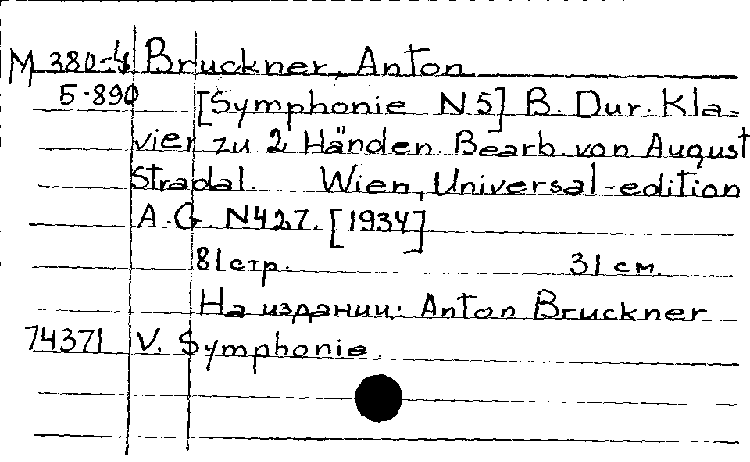 M 380-4 Bruckner, Anton
5-890 [Symphonie N5] B. Dur. Kla-
vier zu 2 Händen. Bearb. von August
Stradal. Wien, Universal-edition
A.G. N427. [1934]
81 стр. 31 см.
На издании: Anton Bruckner
74371 V. Symphonie.